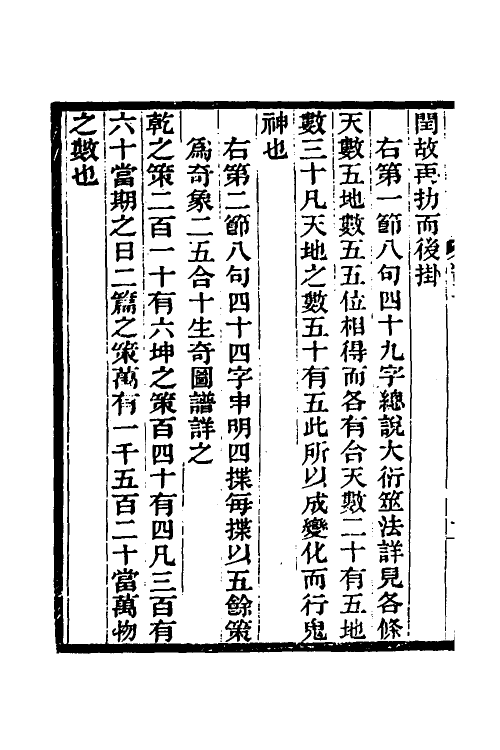 閏故再扐而後掛
右第一節八句四十九字總說大衍筮法詳見各條
天數五地數五五位相得而各有合天數二十有五地
數三十凡天地之數五十有五此所以成變化而行鬼
神也
右第二節八句四十四字申明四揲每揲以五餘策
爲奇象二五合十生奇圖譜詳之
乾之策二百一十有六坤之策百四十有四凡三百有
六十當期之日二篇之策萬有一千五百二十當萬物
之數也